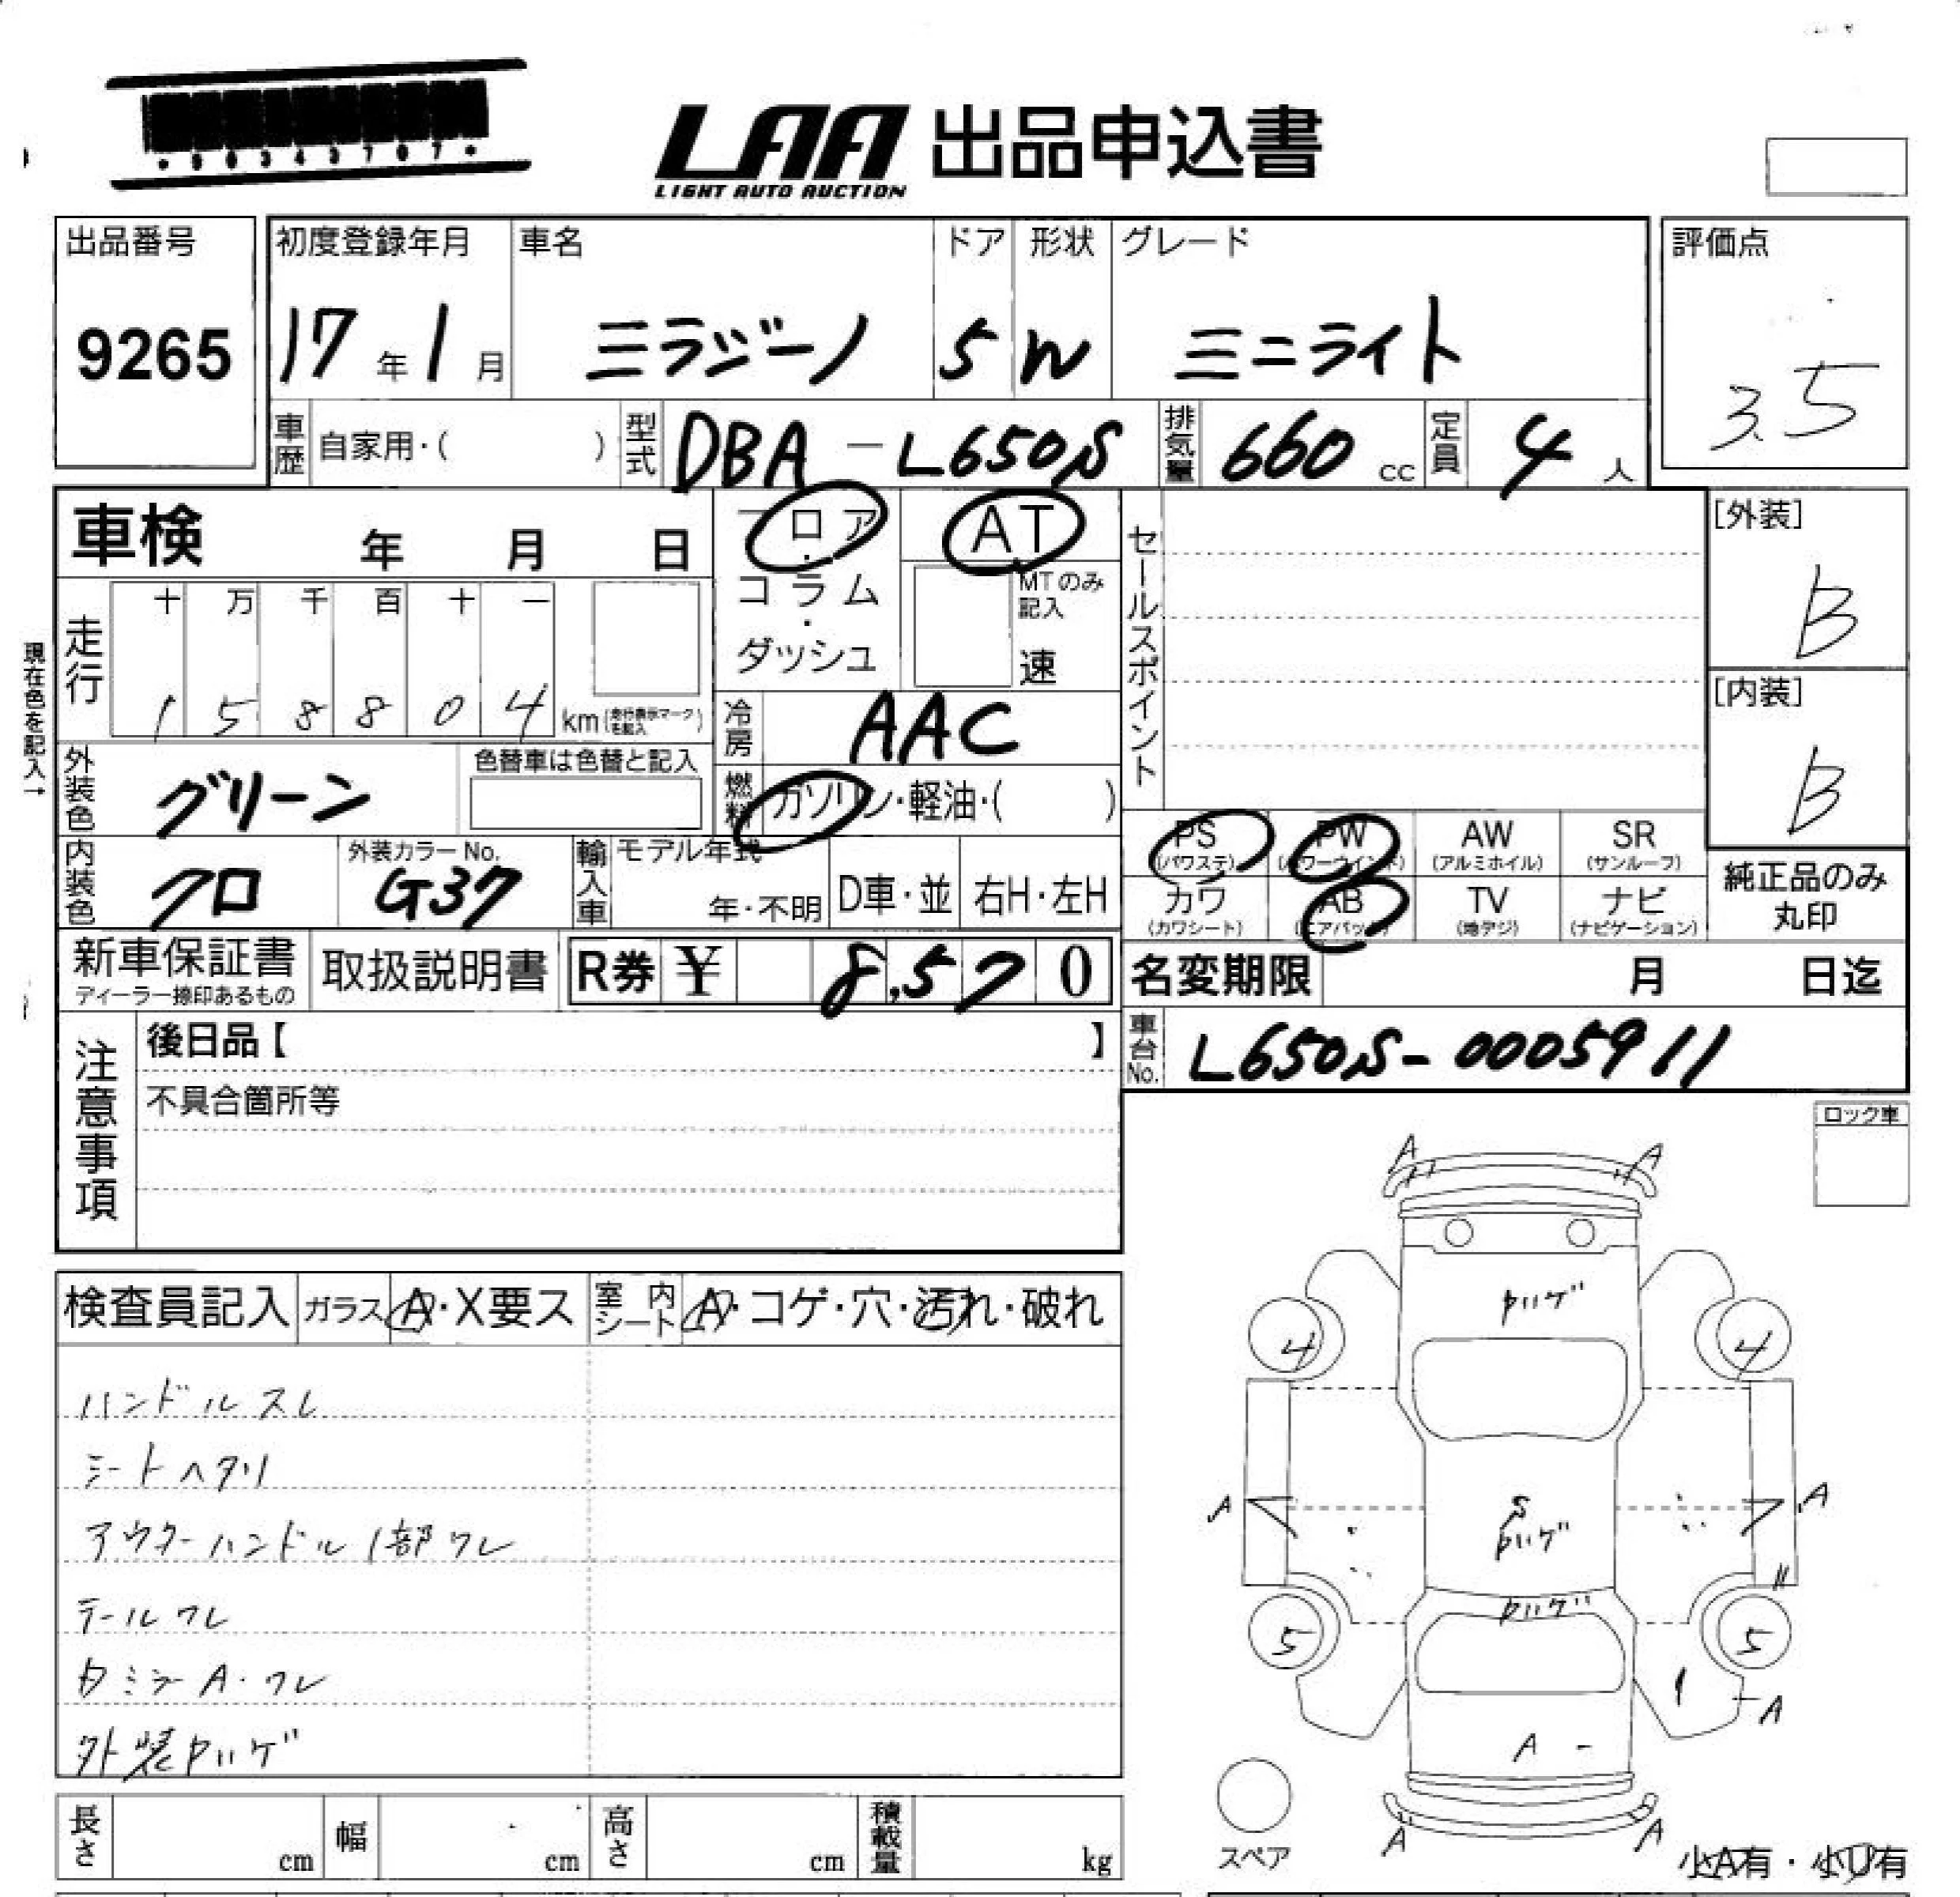 LAA 出品申込書
LIGHT AUTO AUCTION
出品番号 初度登録年月 車名 ドア 形状 グレード 評価点
9265 17年1月 ミラジーノ 5 W ミニライト 3.5
車歴 自家用・( ) 型式 DBA-L650S 排気量 660cc 定員 4人
車検 年 月 日
フロア・コラム・ダッシュ
AT
MTのみ記入
速
セールスポイント
[外装]
B
[内装]
B
現在色を記入→
走行 十 万 千 百 十 一
1 5 8 8 0 4 km(走行表示マークを記入)
冷房 AAC
外装色 グリーン 色替車は色替と記入
燃料 ガソリン・軽油・( )
内装色 クロ 外装カラーNo. G37
輸入車 モデル年式 年・不明 D車・並 右H・左H
PS (パワステ) PW (パワーウインド) AW (アルミホイル) SR (サンルーフ)
カワ (カワシート) AB (エアバッグ) TV (地デジ) ナビ (ナビゲーション)
純正品のみ丸印
新車保証書
ディーラー捺印あるもの
取扱説明書
R券 ¥ 8,570
名変期限 月 日迄
車台No. L650S-0005911
注意事項
後日品【 】
不具合箇所等
ロック車
検査員記入 ガラス A・X要ス 室内シート A・コゲ・穴・汚れ・破れ
ハンドルスレ
シートヘタリ
アウターハンドル1部ワレ
テールワレ
ミラーA・ワレ
外装
A A
4 4
A S A
5 5
A
A
A A
スペア
小A有・小U有
長さ cm 幅 cm 高さ cm 積載量 kg